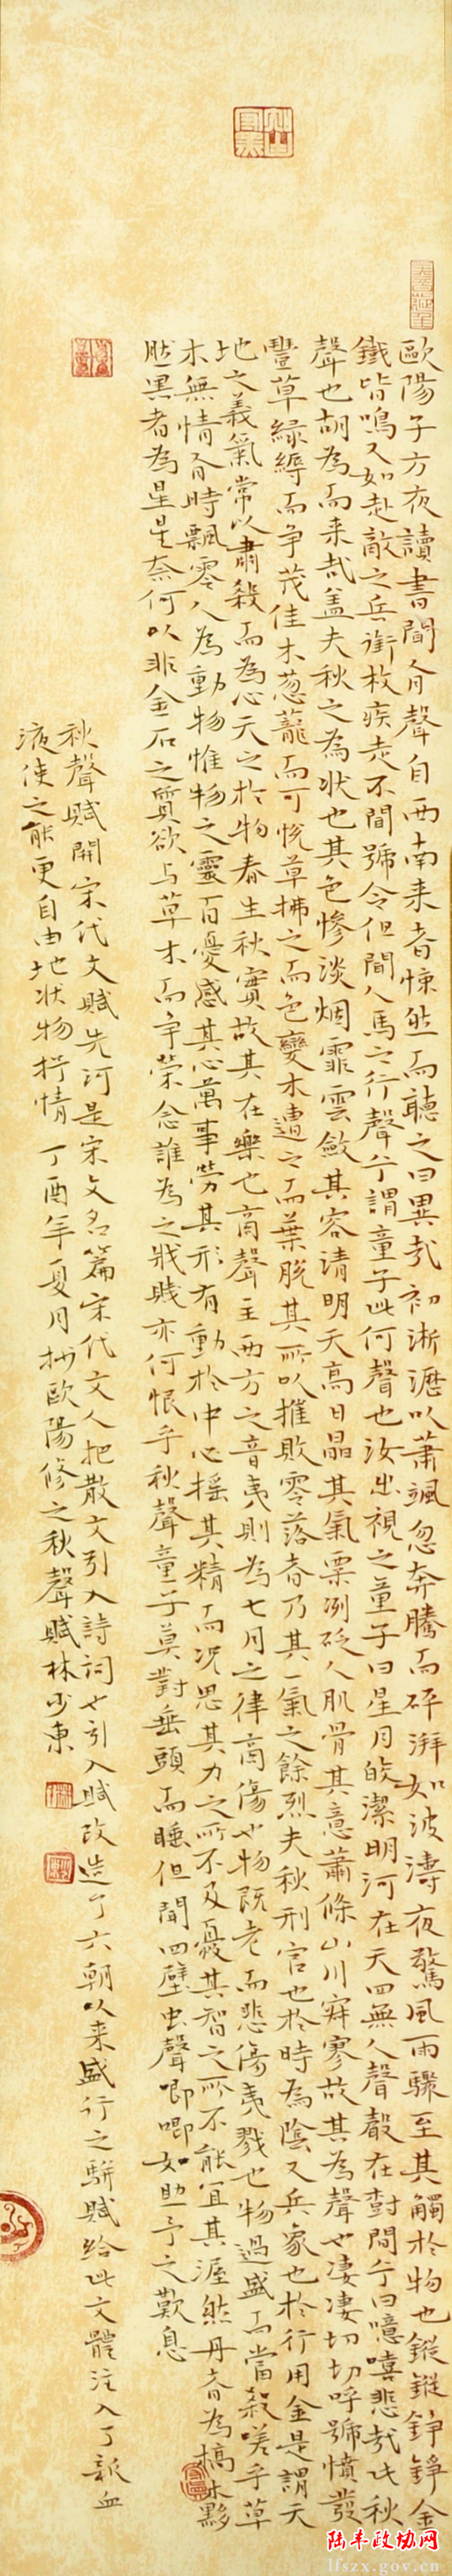 歐陽子方夜讀書聞有聲自西南来者悚然而聽之曰異哉初淅瀝以蕭颯忽奔騰而砰湃如波濤夜驚風雨驟至其觸於物也鏦鏦錚錚金
鐵皆鳴又如赴敵之兵銜枚疾走不聞號令但聞人馬之行聲予謂童子此何聲也汝出視之童子曰星月皎潔明河在天四無人聲聲在樹間予曰噫嘻悲哉此秋
聲也胡為而来哉盖夫秋之為状也其色慘淡烟霏雲斂其容清明天高日晶其氣栗冽砭人肌骨其意蕭條山川寂寥故其為聲也凄凄切切呼號憤發
豐草緑縟而争茂佳木葱蘢而可悦草拂之而色變木遭之而葉脱其所以摧敗零落者乃其一氣之餘烈夫秋刑官也於時為陰又兵家也於行用金是謂天
地之義氣常以肅殺而為心天之於物春生秋實故其在樂也商聲主西方之音夷則為七月之律商傷也物既老而悲傷夷戮也物過盛而當殺嗟乎草
木無情有時飄零人為動物惟物之靈百憂感其心萬事勞其形有動於中心摇其精而况思其力之所不及憂其智之所不能宜其渥然丹者為槁木黟
然黑者為星星奈何以非金石之質欲与草木而争榮念誰為之戕賊亦何恨乎秋聲童子莫對垂頭而睡但聞四壁虫聲唧唧如助予之歎息
秋聲賦開宋代文賦先河是宋文名篇宋代文人把散文引入詩詞也引入賦改造了六朝以来盛行之駢賦給此文體注入了新血
液使之能更自由地状物抒情 丁酉年夏月抄歐陽修之秋聲賦林少東
陆丰政协网
lfszx.gov.cn